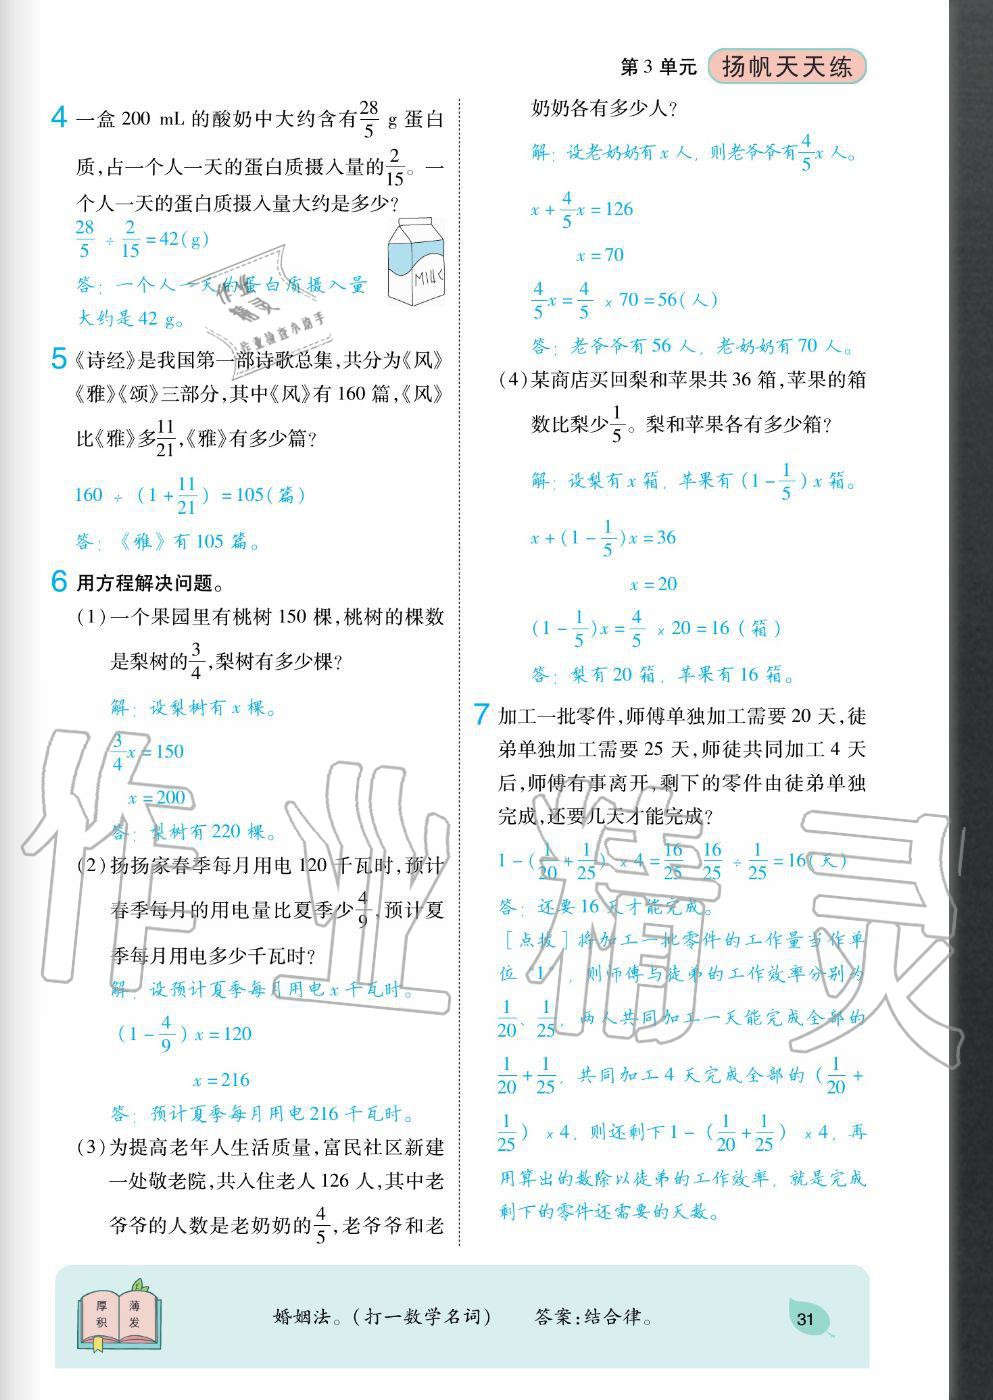 第3单元 扬帆天天练
4 一盒 200 mL 的酸奶中大约含有28/5 g 蛋白
质,占一个人一天的蛋白质摄入量的2/15。一
个人一天的蛋白质摄入量大约是多少?
28/5 ÷ 2/15 = 42(g)
答：一个人一天的蛋白质摄入量
大约是 42 g。
MILK
5 《诗经》是我国第一部诗歌总集,共分为《风》
《雅》《颂》三部分,其中《风》有 160 篇,《风》
比《雅》多11/21,《雅》有多少篇?
160 ÷ (1+11/21) = 105(篇)
答：《雅》有 105 篇。
6 用方程解决问题。
(1)一个果园里有桃树 150 棵,桃树的棵数
是梨树的3/4,梨树有多少棵?
解：设梨树有 x 棵。
3/4x = 150
x = 200
答：梨树有 220 棵。
(2)扬扬家春季每月用电 120 千瓦时,预计
春季每月的用电量比夏季少4/9,预计夏
季每月用电多少千瓦时?
解：设预计夏季每月用电 x 千瓦时。
(1-4/9)x = 120
x = 216
答：预计夏季每月用电 216 千瓦时。
(3)为提高老年人生活质量,富民社区新建
一处敬老院,共入住老人 126 人,其中老
爷爷的人数是老奶奶的4/5,老爷爷和老
奶奶各有多少人?
解：设老奶奶有 x 人，则老爷爷有4/5x 人。
x + 4/5x = 126
x = 70
4/5x = 4/5 × 70 = 56(人)
答：老爷爷有 56 人，老奶奶有 70 人。
(4)某商店买回梨和苹果共 36 箱,苹果的箱
数比梨少1/5。梨和苹果各有多少箱?
解：设梨有 x 箱，苹果有(1-1/5)x 箱。
x+(1-1/5)x = 36
x = 20
(1-1/5)x = 4/5 × 20 = 16(箱)
答：梨有 20 箱，苹果有 16 箱。
7 加工一批零件,师傅单独加工需要 20 天,徒
弟单独加工需要 25 天,师徒共同加工 4 天
后,师傅有事离开,剩下的零件由徒弟单独
完成,还要几天才能完成?
1-(1/20+1/25)×4=16/25 16/25÷1/25=16(天)
答：还要 16 天才能完成。
[点拨]将加工一批零件的工作量当作单
位“1”，则师傅与徒弟的工作效率分别为
1/20、1/25，两人共同加工一天能完成全部的
1/20+1/25，共同加工 4 天完成全部的(1/20+
1/25)×4，则还剩下 1-(1/20+1/25)×4，再
用算出的数除以徒弟的工作效率，就是完成
剩下的零件还需要的天数。
厚积 薄发
婚姻法。(打一数学名词) 答案:结合律。
31
作业精灵
作业检查小助手
作业精灵